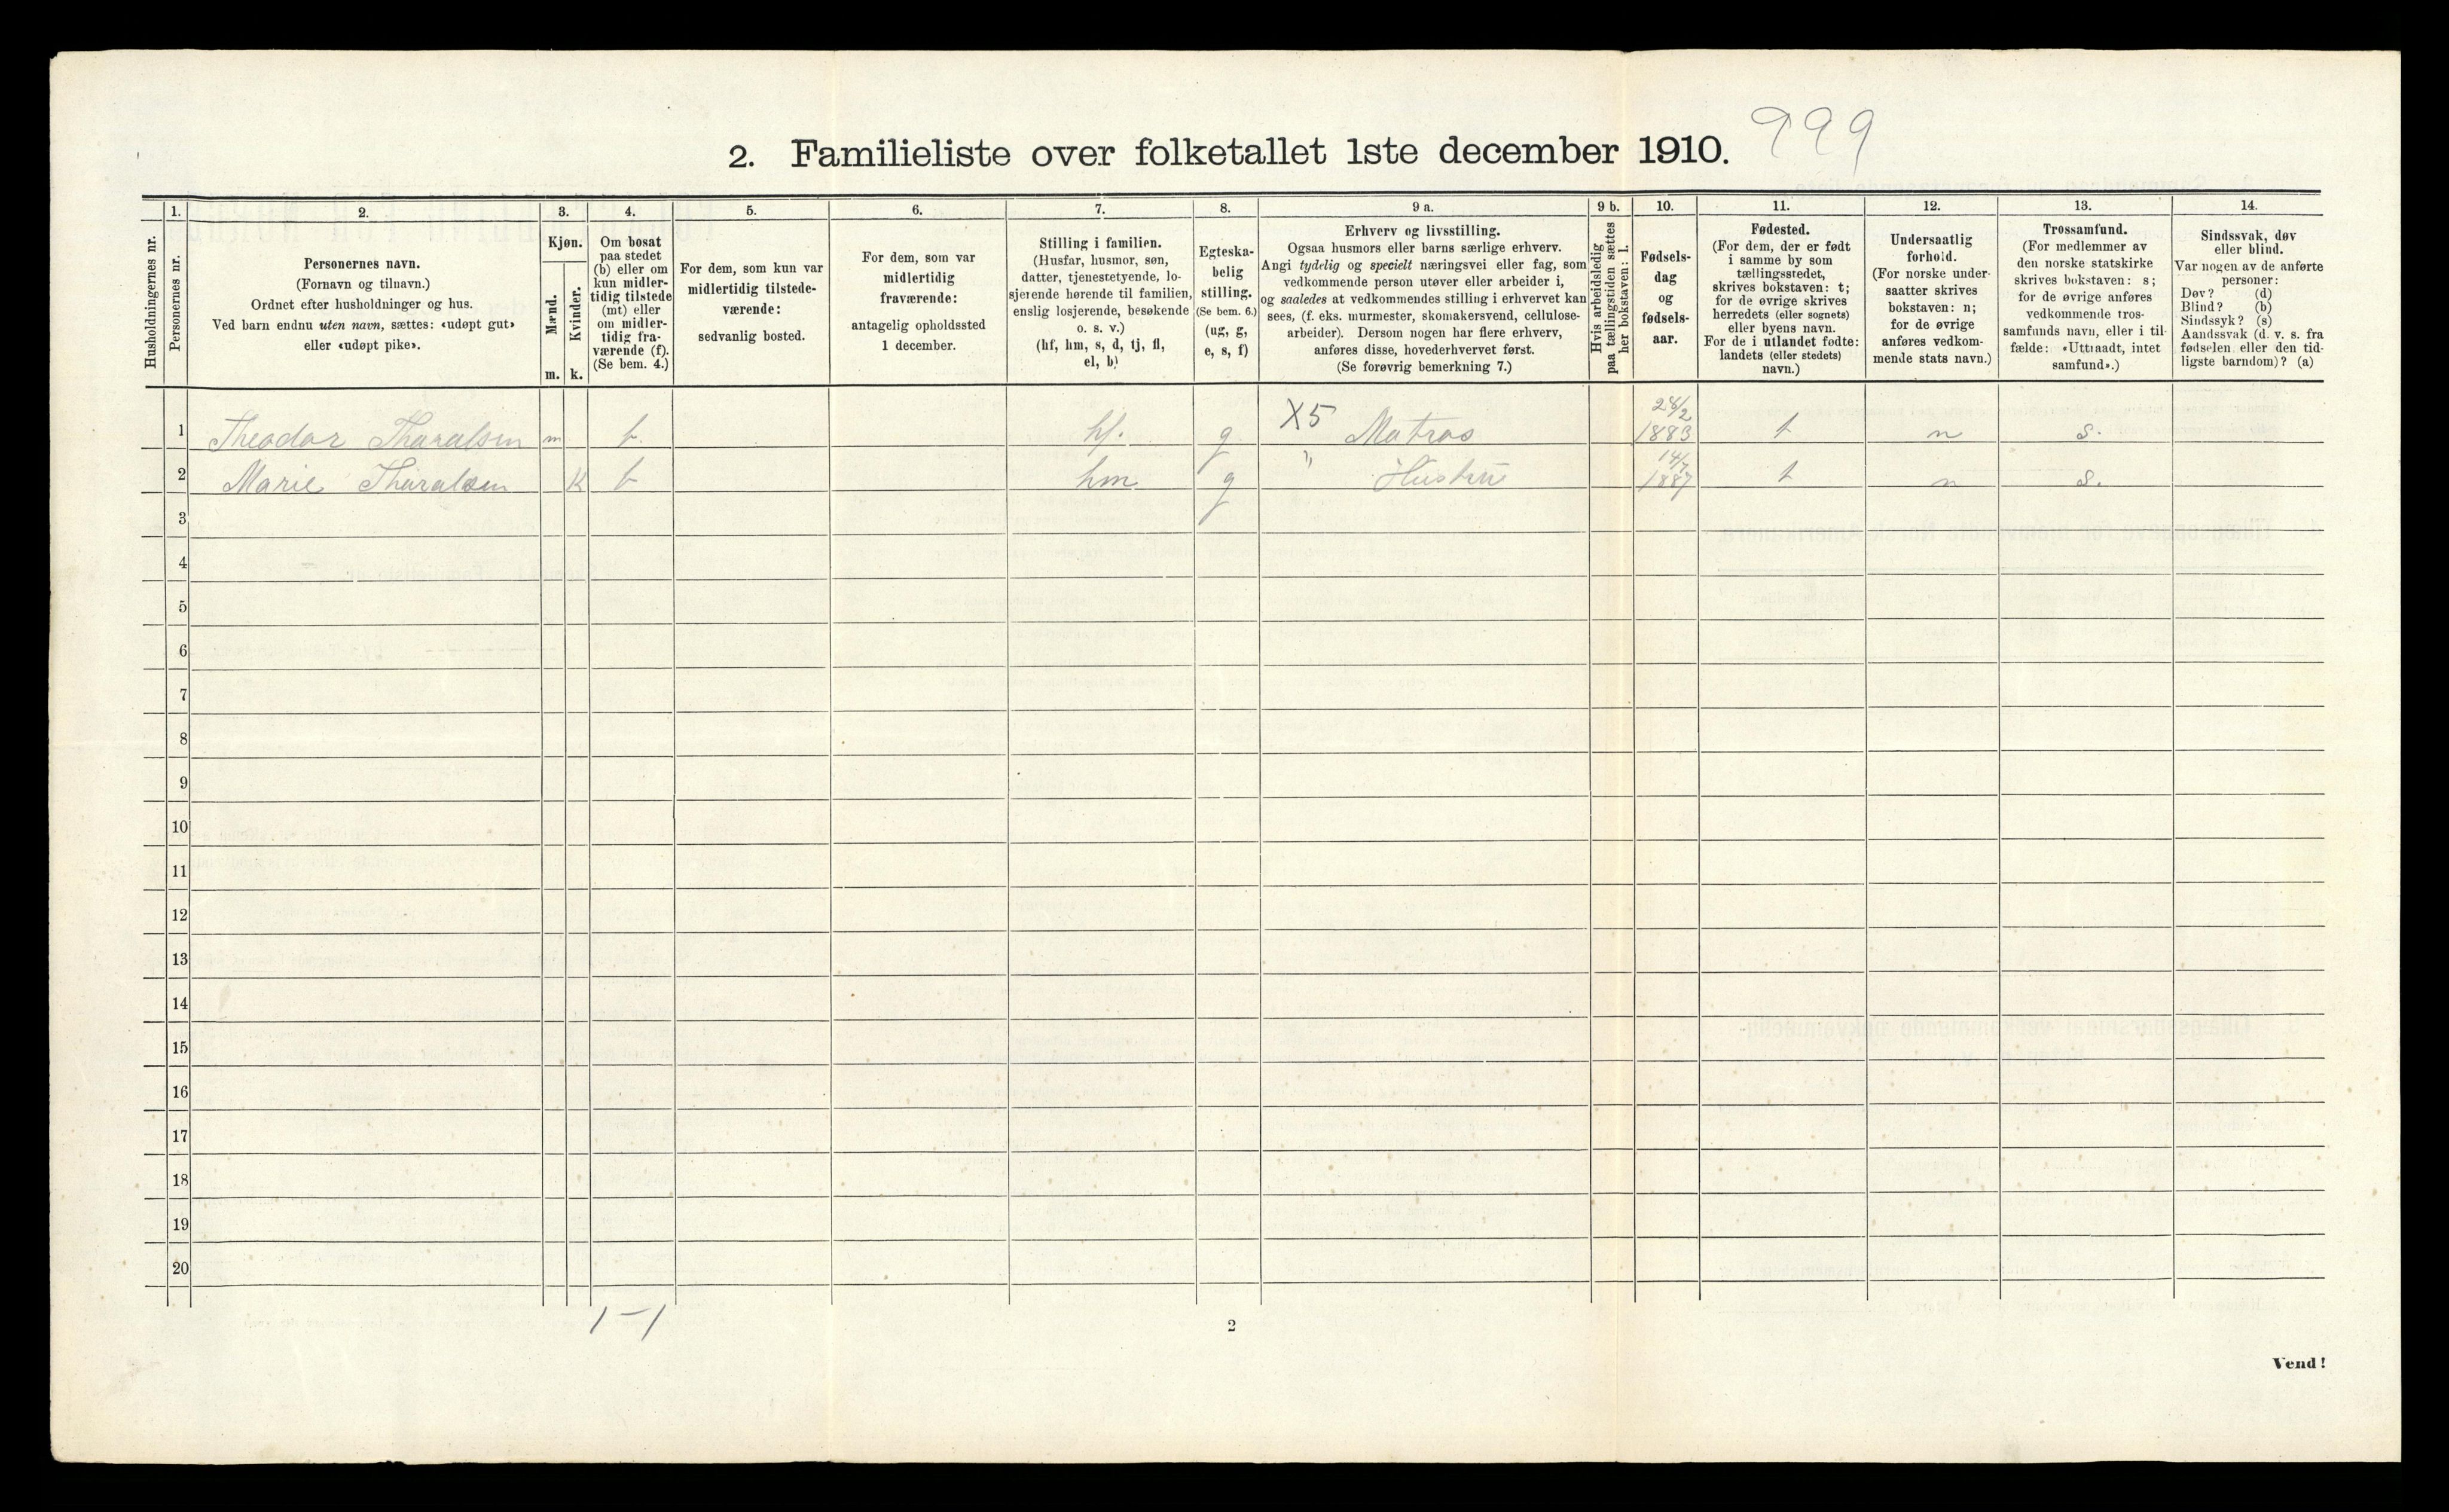 999
2. Familieliste over folketallet 1ste december 1910.
Husholdningernes nr.
1.
Personernes nr.
2.
Personernes navn.
(Fornavn og tilnavn.)
Ordnet efter husholdninger og hus.
Ved barn endnu uten navn, sættes: «udøpt gut»
eller «udøpt pike».
3.
Kjøn.
Mænd.
Kvinder.
m. k.
4.
Om bosat
paa stedet
(b) eller om
kun midler-
tidig tilstede
(mt) eller
om midler-
tidig fra-
værende (f).
(Se bem. 4.)
5.
For dem, som kun var
midlertidig tilstede-
værende:
sedvanlig bosted.
6.
For dem, som var
midlertidig
fraværende:
antagelig opholdssted
1 december.
7.
Stilling i familien.
(Husfar, husmor, søn,
datter, tjenestetyende, lo-
sjerende hørende til familien,
enslig losjerende, besøkende
o. s. v.)
(hf, hm, s, d, tj, fl,
el, b)
8.
Egteska-
belig
stilling.
(Se bem. 6.)
(ug, g,
e, s, f)
9 a.
Erhverv og livsstilling.
Ogsaa husmors eller barns særlige erhverv.
Angi tydelig og specielt næringsvei eller fag, som
vedkommende person utøver eller arbeider i,
og saaledes at vedkommendes stilling i erhvervet kan
sees, (f. eks. murmester, skomakersvend, cellulose-
arbeider). Dersom nogen har flere erhverv,
anføres disse, hovederhvervet først.
(Se forøvrig bemerkning 7.)
9 b.
Hvis arbeidsledig
paa tællingstiden sættes
her bokstaven: l.
10.
Fødsels-
dag
og
fødsels-
aar.
11.
Fødested.
(For dem, der er født
i samme by som
tællingsstedet,
skrives bokstaven: t;
for de øvrige skrives
herredets (eller sognets)
eller byens navn.
For de i utlandet fødte:
landets (eller stedets)
navn.)
12.
Undersaatlig
forhold.
(For norske under-
saatter skrives
bokstaven: n;
for de øvrige
anføres vedkom-
mende stats navn.)
13.
Trossamfund.
(For medlemmer av
den norske statskirke
skrives bokstaven: s;
for de øvrige anføres
vedkommende tros-
samfunds navn, eller i til-
fælde: «Uttraadt, intet
samfund».)
14.
Sindssvak, døv
eller blind.
Var nogen av de anførte
personer:
Døv? (d)
Blind? (b)
Sindssyk? (s)
Aandssvak (d. v. s. fra
fødselen eller den tid-
ligste barndom)? (a)
1 Theodor Tharalsen m b. hf. g X5 Matros 1883 t n s.
2 Marie Tharalsen K b hm g " Hustru 14/7 1887 t n s.
3
4
5
6
7
8
9
10
11
12
13
14
15
16
17
18
19
20
1 – 1
2
Vend!